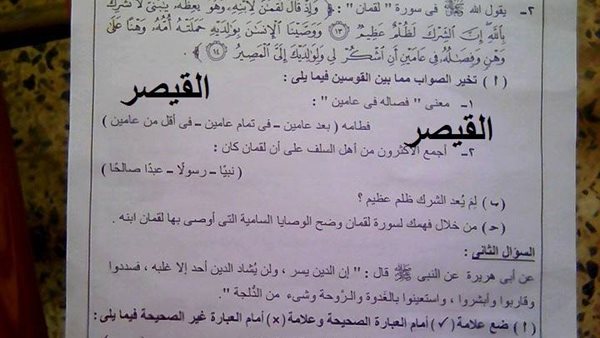 ٢- يقول الله ﷺ فى سورة " لقمان " : ﴿ وَإِذْ قَالَ لُقْمَٰنُ لِٱبْنِهِۦ وَهُوَ يَعِظُهُۥ يَٰبُنَىَّ لَا تُشْرِكْ
بِٱللَّهِ إِنَّ ٱلشِّرْكَ لَظُلْمٌ عَظِيمٌ ١٣ وَوَصَّيْنَا ٱلْإِنسَٰنَ بِوَٰلِدَيْهِ حَمَلَتْهُ أُمُّهُۥ وَهْنًا عَلَىٰ
وَهْنٍ وَفِصَٰلُهُۥ فِى عَامَيْنِ أَنِ ٱشْكُرْ لِى وَلِوَٰلِدَيْكَ إِلَىَّ ٱلْمَصِيرُ ١٤ ﴾
( أ ) تخير الصواب مما بين القوسين فيما يلى :
القيصر
١- معنى " فصاله فى عامين " :
القيصر
فطامه ( بعد عامين – فى تمام عامين – فى أقل من عامين )
٢- أجمع الأكثرون من أهل السلف على أن لقمان كان :
( نبيًا – رسولًا – عبدًا صالحًا )
( ب ) لِمَ يُعد الشرك ظلم عظيم ؟
( جـ ) من خلال فهمك لسورة لقمان وضح الوصايا السامية التى أوصى بها لقمان ابنه .
السؤال الثانى :
عن أبى هريرة عن النبى ﷺ قال : " إن الدين يسر ، ولن يُشاد الدين أحد إلا غلبه ، فسددوا
وقاربوا وأبشروا ، واستعينوا بالغدوة والرَّوحة وشىء من الدُّلجة " .
( أ ) ضع علامة (✓) أمام العبارة الصحيحة وعلامة (×) أمام العبارة غير الصحيحة فيما يلى :